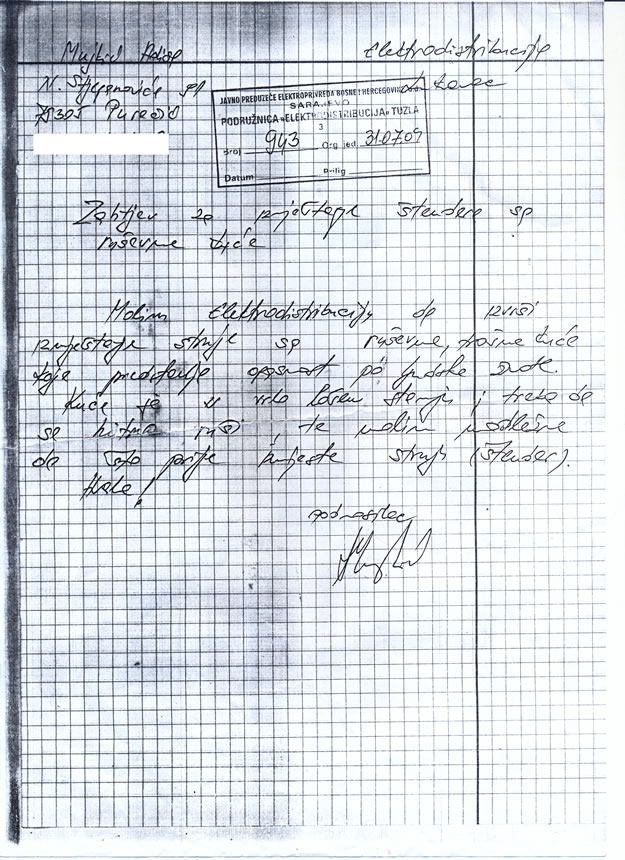 Mujkić Elektrodistribucija
N. Stjepanovića
75305 Puračić Lukavac
JAVNO PREDUZEĆE ELEKTROPRIVREDA BOSNE I HERCEGOVINE
SARAJEVO
PODRUŽNICA «ELEKTRODISTRIBUCIJA» TUZLA
3
Broj 943 Org jed. 31.07.09
Datum Prilig
Zahtjev za izmještanje štendera sa
ruševne kuće
Molim Elektrodistribuciju da izvrši
izmještanje struje sa ruševne, trošne kuće
koja predstavlja opasnost po ljudske živote.
Kuća je u vrlo lošem stanju i treba da
se hitno ruši, te molim nadležne
da što prije izmjeste struju (štender).
Hvala!
podnosilac